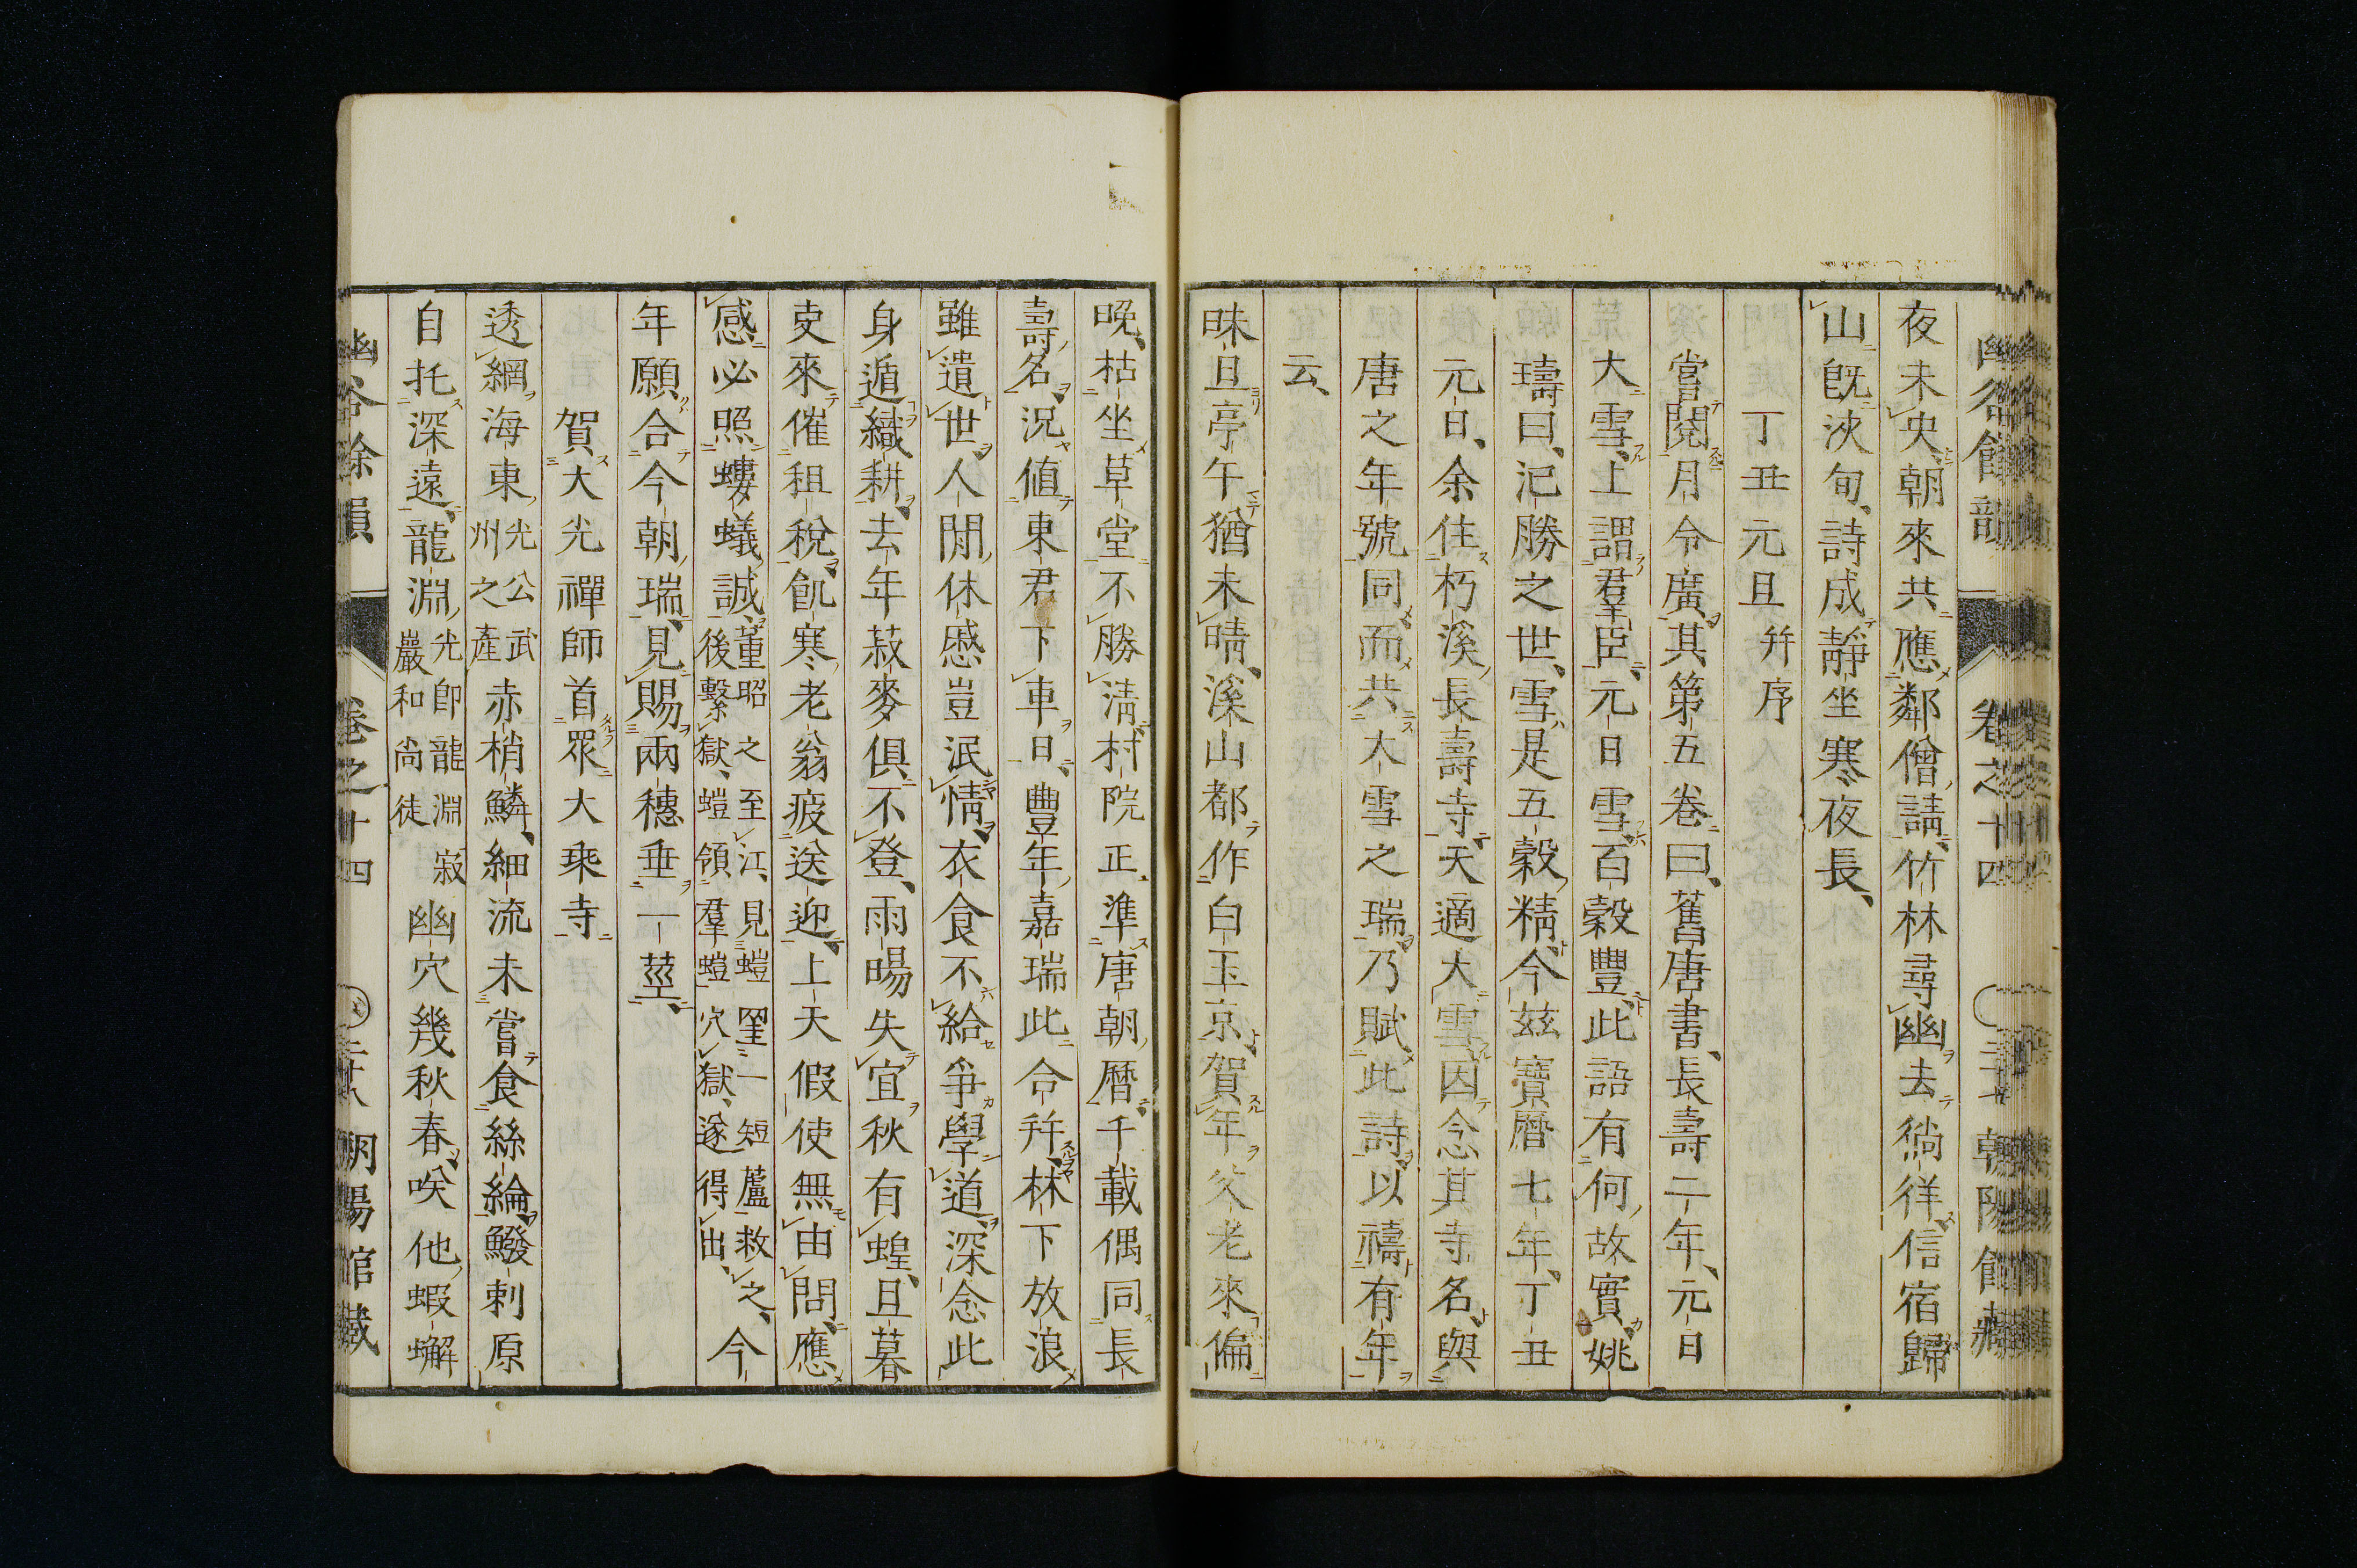 幽谷餘韻 卷之十四 三十七 朝陽館藏
夜未央朝來共應鄰僧請竹林尋幽去徜徉信宿歸
山既浹旬詩成靜坐寒夜長
丁丑元旦 幷序
嘗閱月令廣其第五卷曰舊唐書長壽二年元日
大雪上謂羣臣元日雪百穀豐此語有何故實姚
璹曰氾勝之世雪是五穀精今茲寶曆七年丁丑
元日余住朽溪長壽寺天適大雪因念其寺名與
唐之年號同而共大雪之瑞乃賦此詩以禱有年
云
昧旦亭午猶未晴溪山都作白玉京賀年父老來偏
晚枯坐草堂不勝淸村院正準唐朝曆千載偶同長
壽名況値東君下車日豐年嘉瑞此合幷林下放浪
雖遺世人閒休慼豈泯情衣食不給爭學道深念此
身遁織耕去年菽麥俱不登雨暘失宜秋有蝗且暮
吏來催租稅飢寒老翁疲送迎上天假使無由問應
感必照螻蟻誠董昭之至江見螘罣一短蘆救之
後繫獄螘領羣螘穴獄遂得出今
年願合今朝瑞見賜兩穗垂一莖
賀大光禪師首眾大乘寺
透網海東光公武
州之產赤梢鱗細流未嘗食絲綸鱍剌原
自托深遠龍淵光卽龍淵寂
巖和尙徒幽穴幾秋春唉他蝦蠏
幽谷餘韻 卷之十四 三十八 朝陽館藏